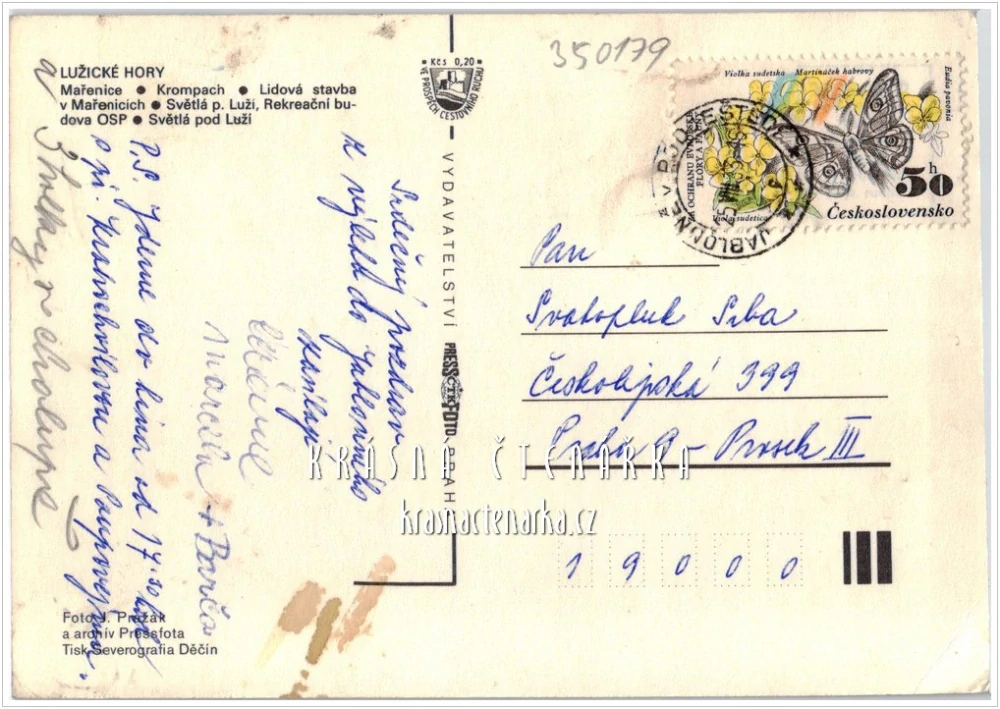 LUŽICKÉ HORY
Mařenice • Krompach • Lidová stavba
v Mařenicích • Světlá p. Luží, Rekreační bu-
dova OSP • Světlá pod Luží
Kčs 0,20
VE PROSPĚCH CESTOVNÍHO RUCHU
350179
Violka sudetska Martináček habrový
Eudia pavonia
ZA OCHRANU EVROPSKÉ
FLÓRY A FAUNY
Viola sudetica
50 h
Československo
JABLONNÉ V PODJEŠTĚDÍ
Srdečný pozdrav
z výletu do Jablonného
zasílají
Marcela + Barča
P.S. Jdeme do kina od 17.30 hod
a
z chalupy
VYDAVATELSTVÍ PRESSFOTO PRAHA
ČTK
Pan
Svatopluk Srba
Českolipská 399
Praha 9 - Prosek III
19000
KRÁSNÁ ČTENÁŘKA
krasnactenarka.cz
Foto J. Pražák
a archív Pressfota
Tisk Severografia Děčín